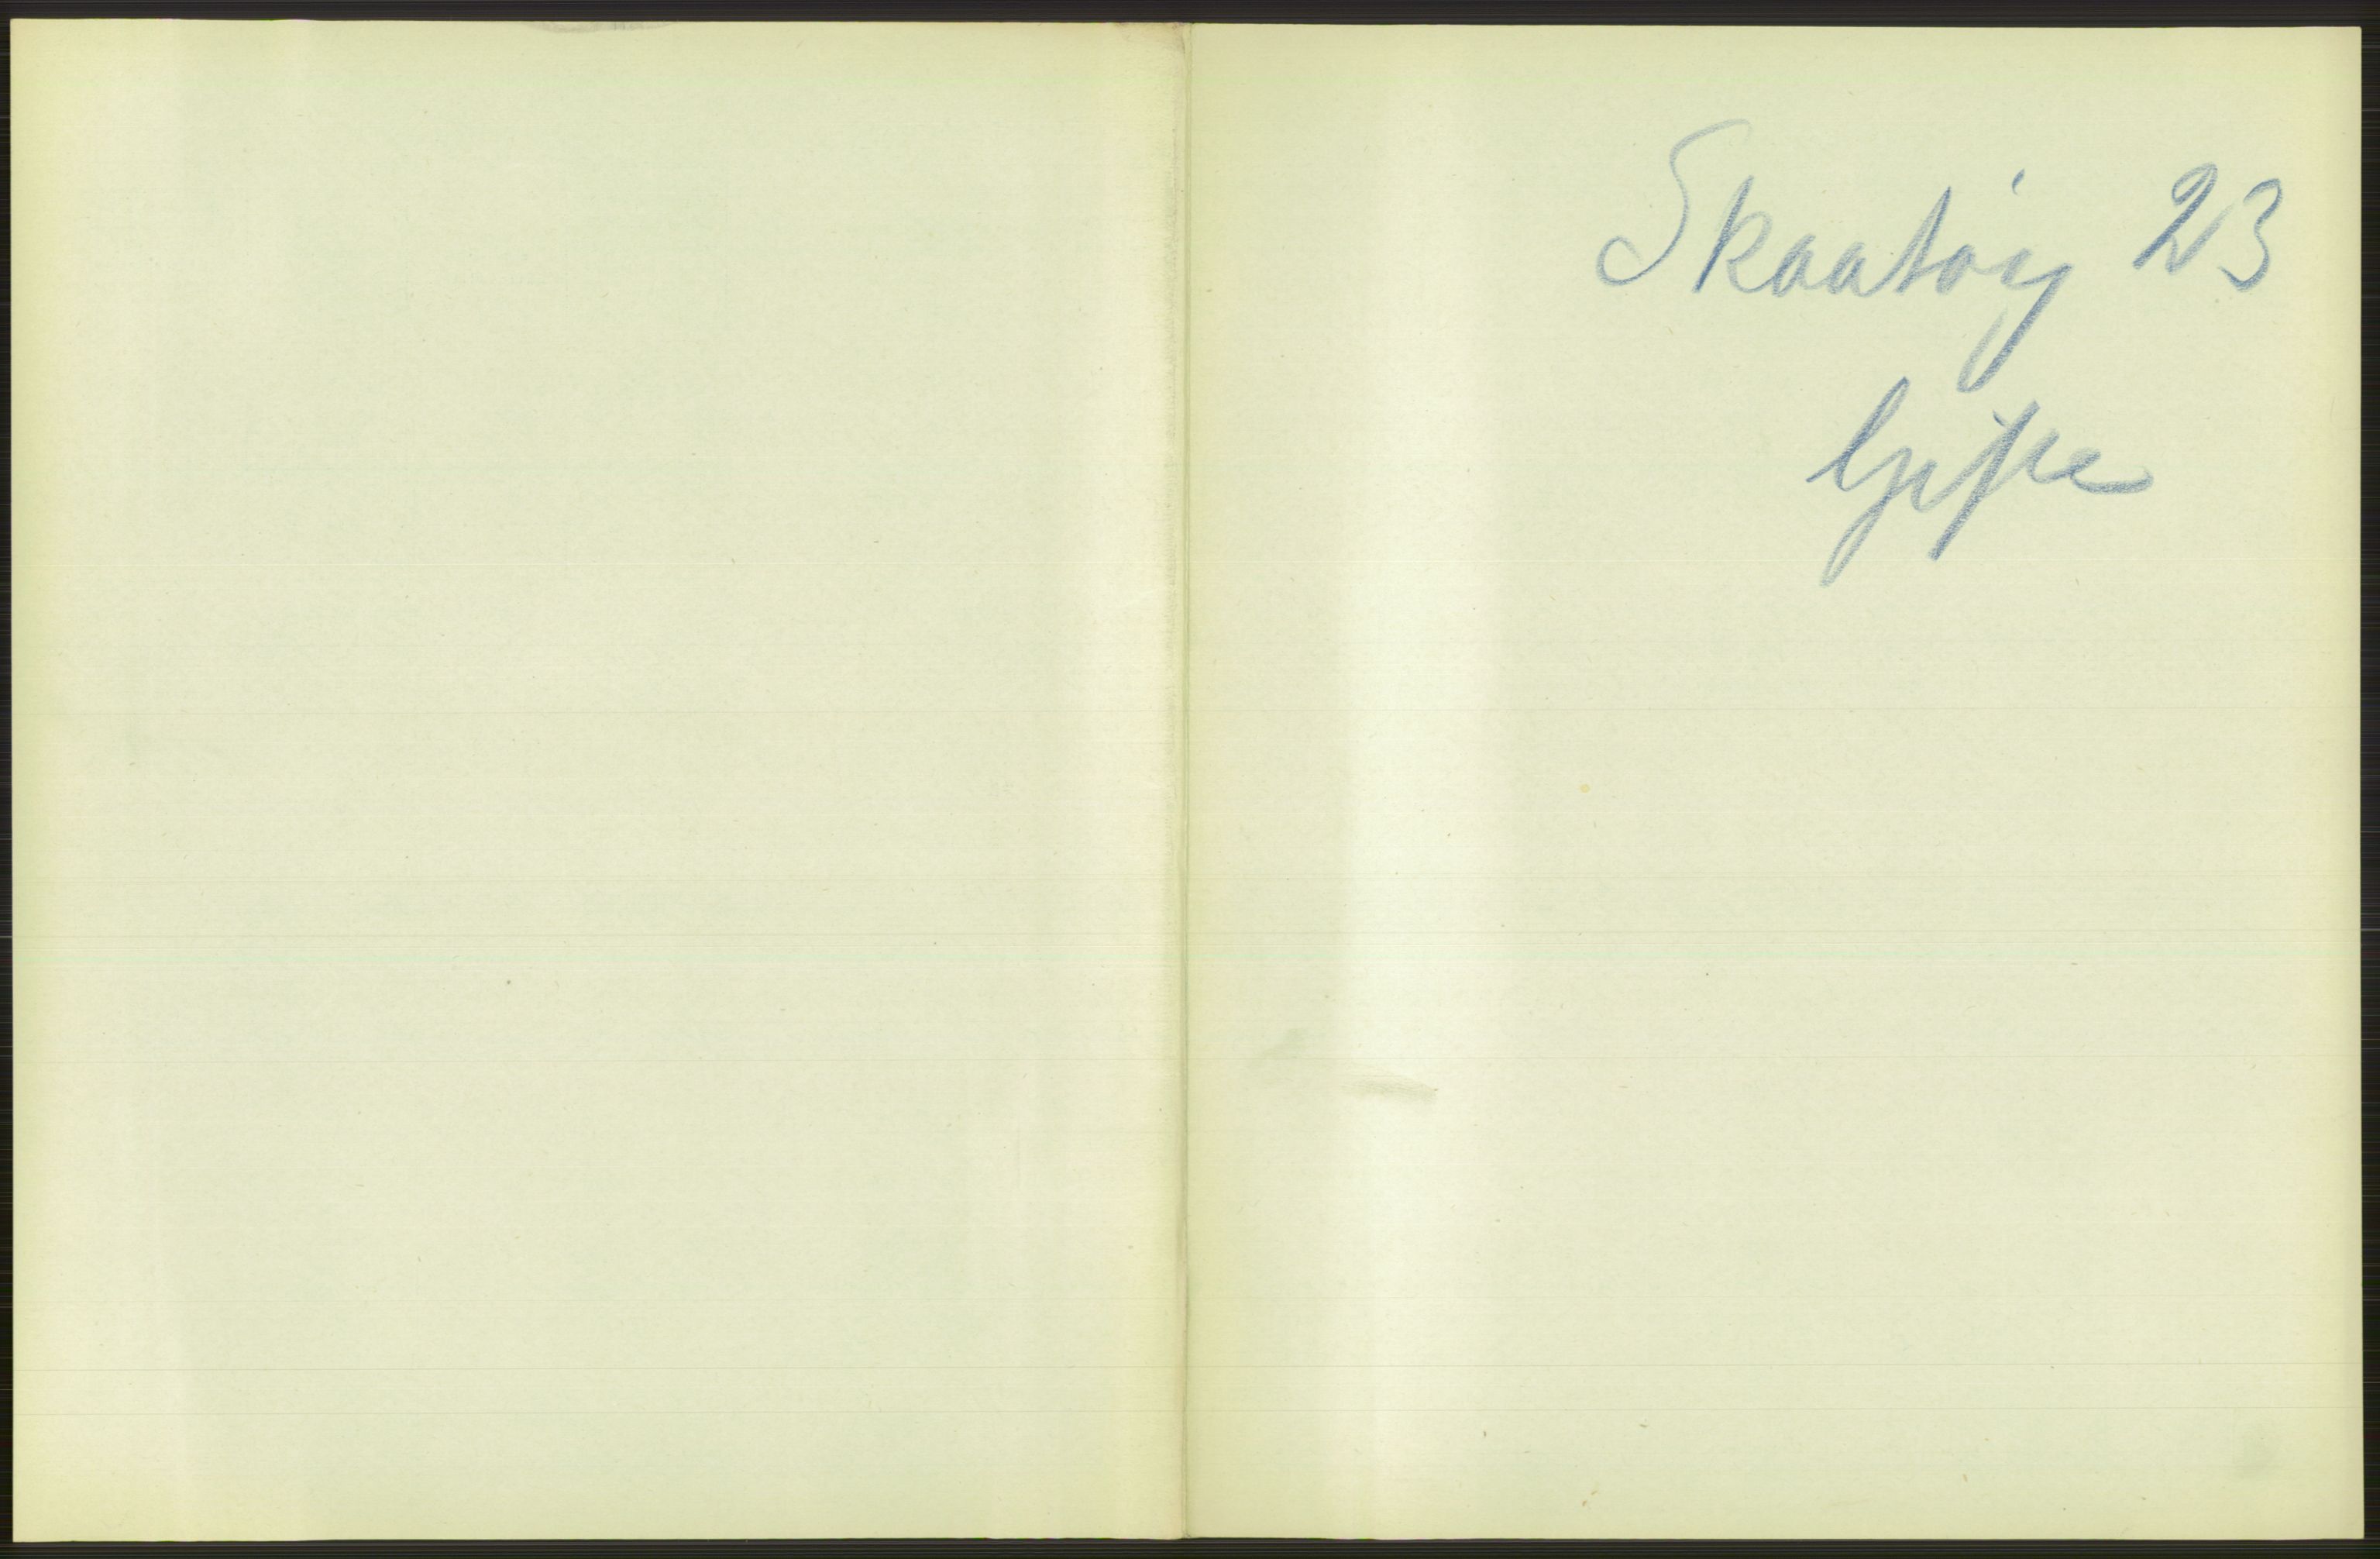 Skaatöy 23
Gifte